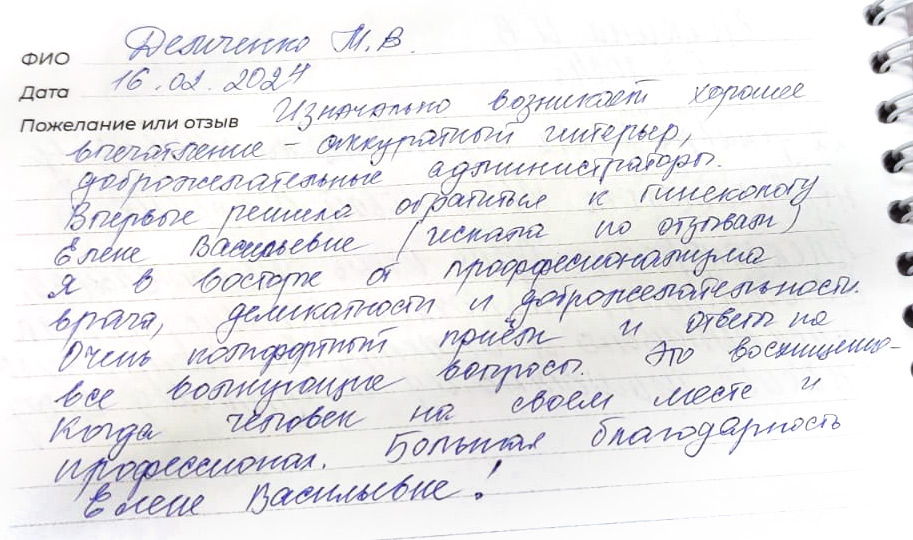 ФИО Демченко М.В.
Дата 16.02.2024
Пожелание или отзыв Изначально возникает хорошее
впечатление - аккуратный интерьер,
доброжелательные администраторы.
Впервые решила обратиться к гинекологу
Елене Васильевне (искала по отзывам)
Я в восторге от профессионализма
врача, деликатности и доброжелательности.
Очень комфортный приём и ответы на
все волнующие вопросы. Это восхищение -
Когда человек на своем месте и
профессионал. Большая благодарность
Елене Васильевне!